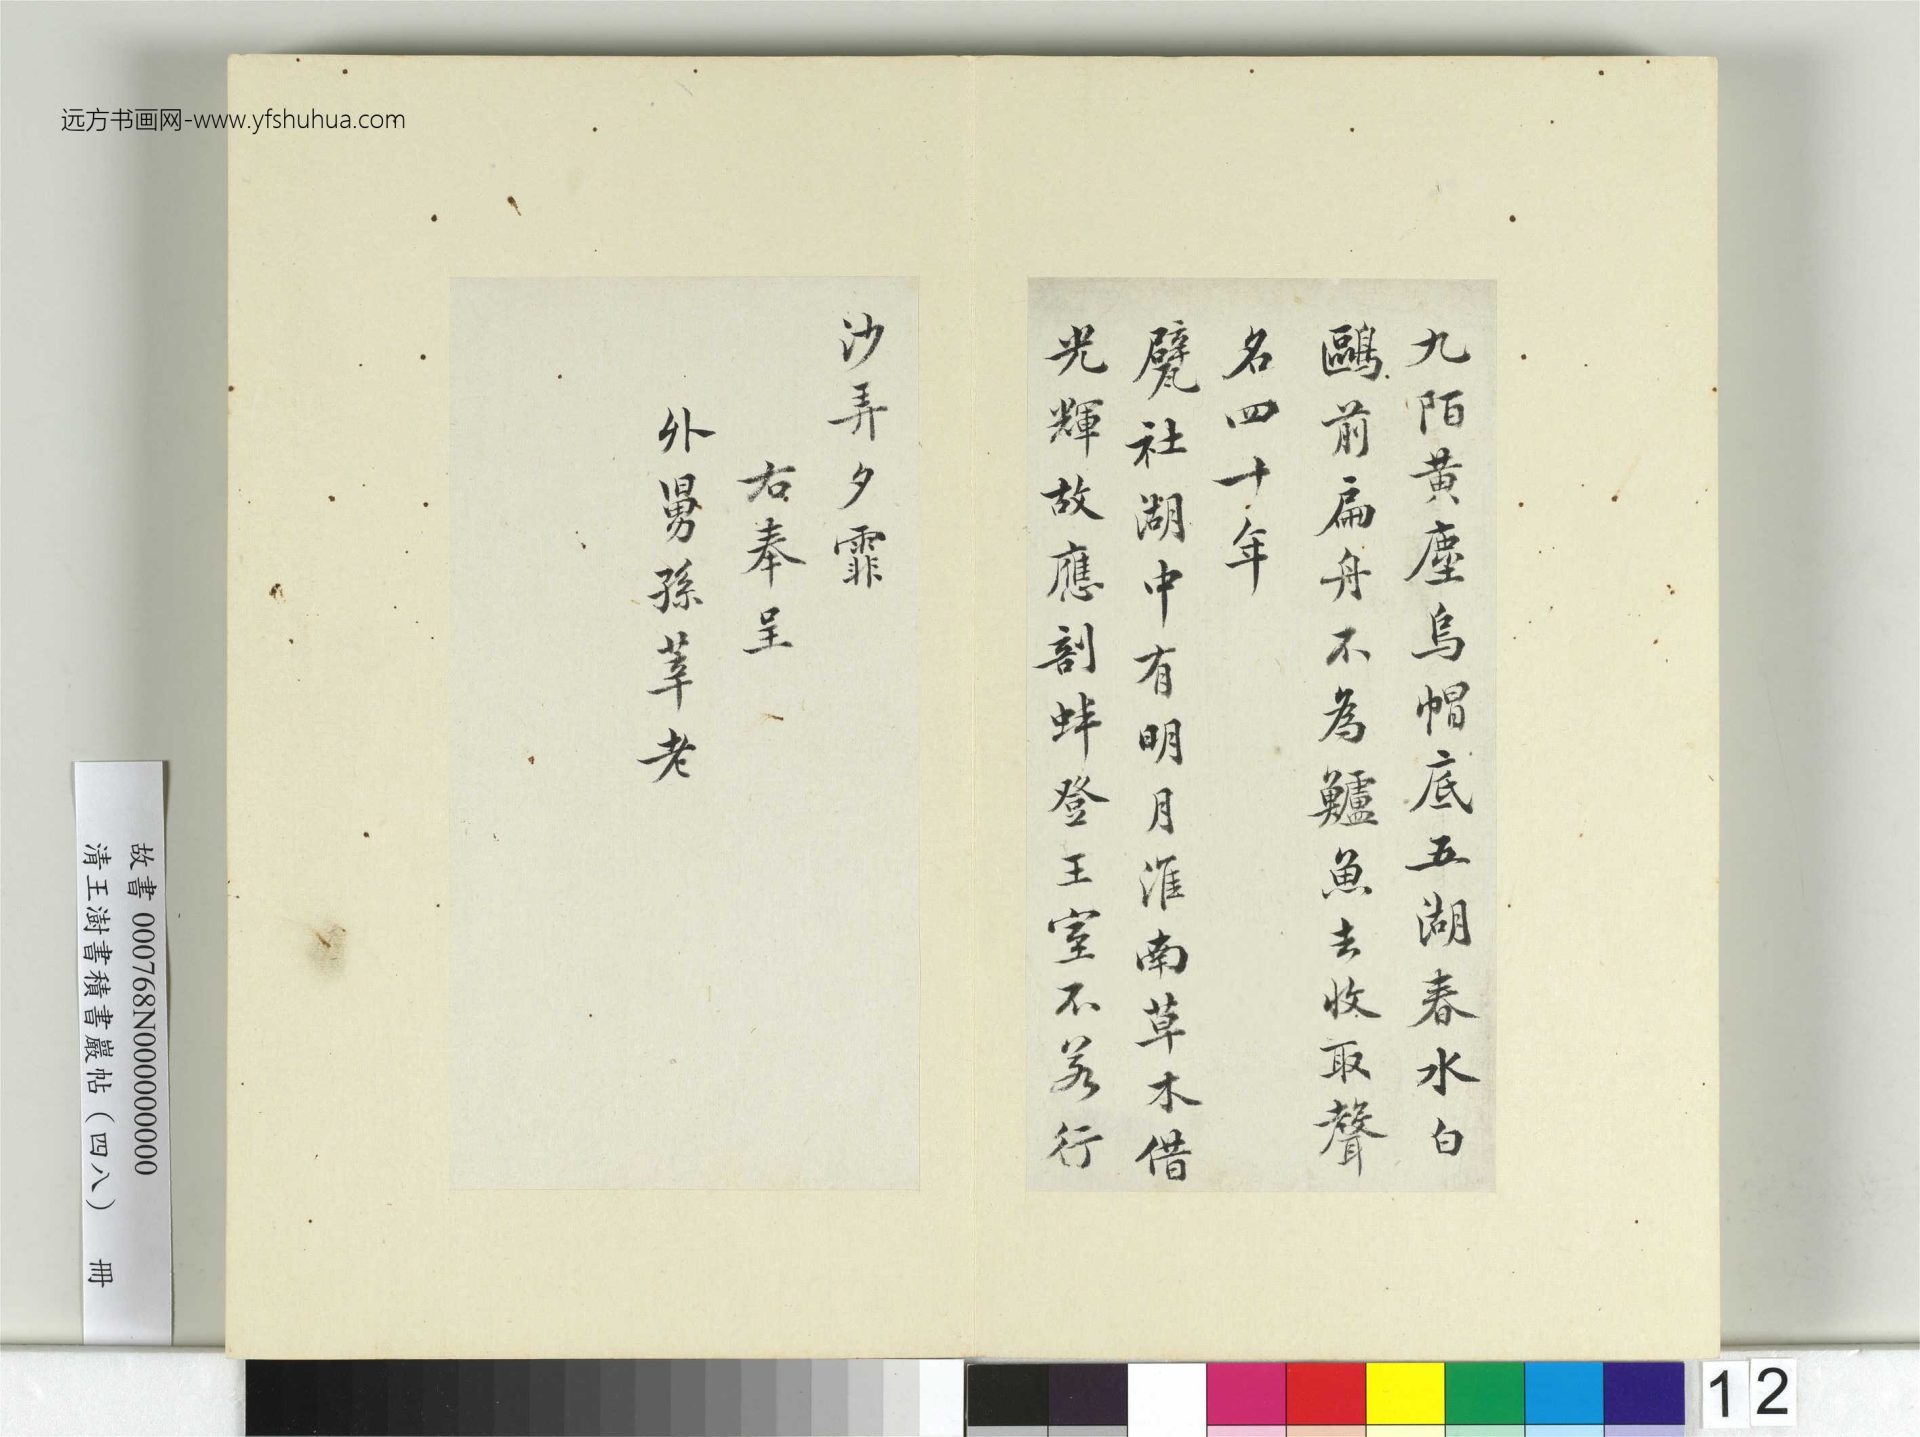 远方书画网-www.yfshuhua.com
九陌黃塵烏帽底五湖春水白
鷗前扁舟不為鱸魚去收取聲
名四十年
甓社湖中有明月淮南草木借
光輝故應剖蚌登王室不若行
沙弄夕霏
右奉呈
外舅孫莘老
故書 000768N000000000
清王澍書積書巖帖(四八) 冊
12